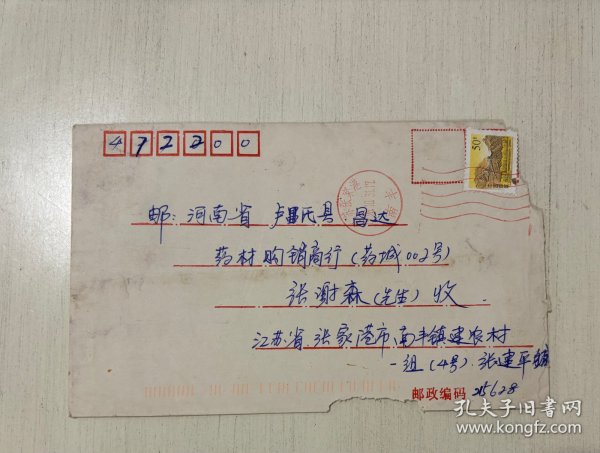 472200
50分
邮:河南省 卢氏县 昌达
药材购销商行(药城002号)
张谢森(先生)收.
江苏省.张家港市.南丰镇建农村
一组(4号).张建平
邮政编码 215628
孔夫子旧书网
www.kongfz.com